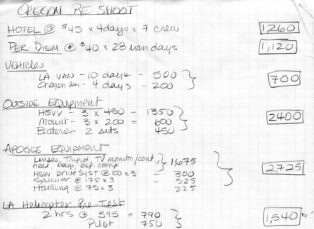 OREGON PC SHOOT
HOTEL @ $45 x 4 days x 7 crew 1260
PER DIEM @ $40 x 28 man days 1,120
VEHICLES
LA vans - 10 days - 500
Oregon - 4 days - 200 700
OUTSIDE EQUIPMENT
HSVV - 3 x 450 = 1350
Mount - 3 x 200 = 600
Batteries 2 sets 450 2400
APOGEE EQUIPMENT
Lenses, Tripod, TV monitor/cont,
1,675
HSVV Drive Syst @ 100 x 3 = 300
@ 175 x 3 = 525
Housing @ 75 x 3 225 2725
LA Helicopter Pre Test
2 hrs @ 395 = 790
Pilot 750 1,540